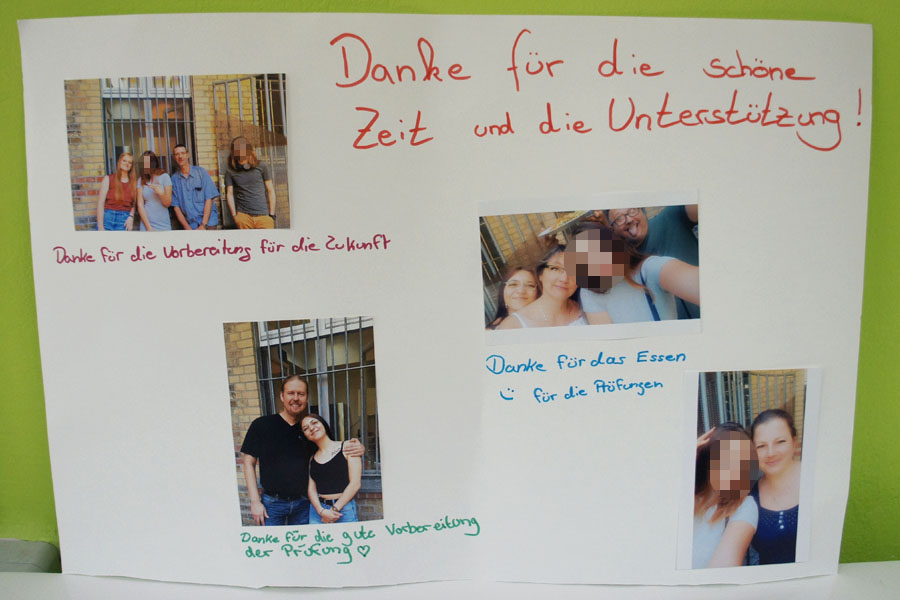 Danke für die schöne
Zeit und die Unterstützung!
Danke für die Vorbereitung für die Zukunft
Danke für das Essen
für die Prüfungen
Danke für die gute Vorbereitung
der Prüfung ♡